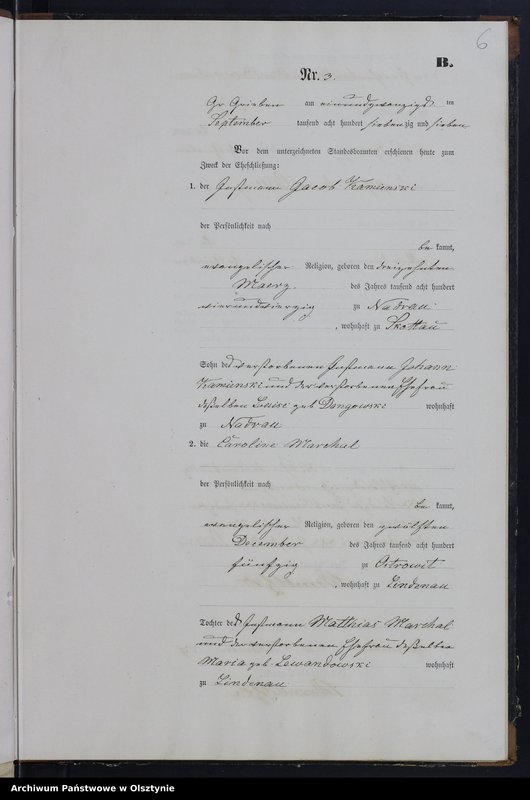 6
B.
Nr. 3.
Gr Grieben am einundzwanzigsten
September tausend acht hundert siebenzig und sieben
Vor dem unterzeichneten Standesbeamten erschienen heute zum
Zweck der Eheschließung:
1. der Instmann Jacob Kamienski
der Persönlichkeit nach
be kannt,
evangelischer Religion, geboren den dreizehnten
Maerz des Jahres tausend acht hundert
vierundvierzig zu Nadrau
, wohnhaft zu Skottau
Sohn des verstorbenen Instmann Johann
Kamienski und der verstorbenen Ehefrau
deßelben Louise geb Dongowski wohnhaft
zu Nadrau
2. die Caroline Marchel
der Persönlichkeit nach
be kannt,
evangelischer Religion, geboren den zwölften
December des Jahres tausend acht hundert
fünfzig zu Ostrowit
, wohnhaft zu Lindenau
Tochter des Instmann Matthias Marchel
und der verstorbenen Ehefrau deßelben
Maria geb Lewandowski wohnhaft
zu Lindenau
Archiwum Państwowe w Olsztynie